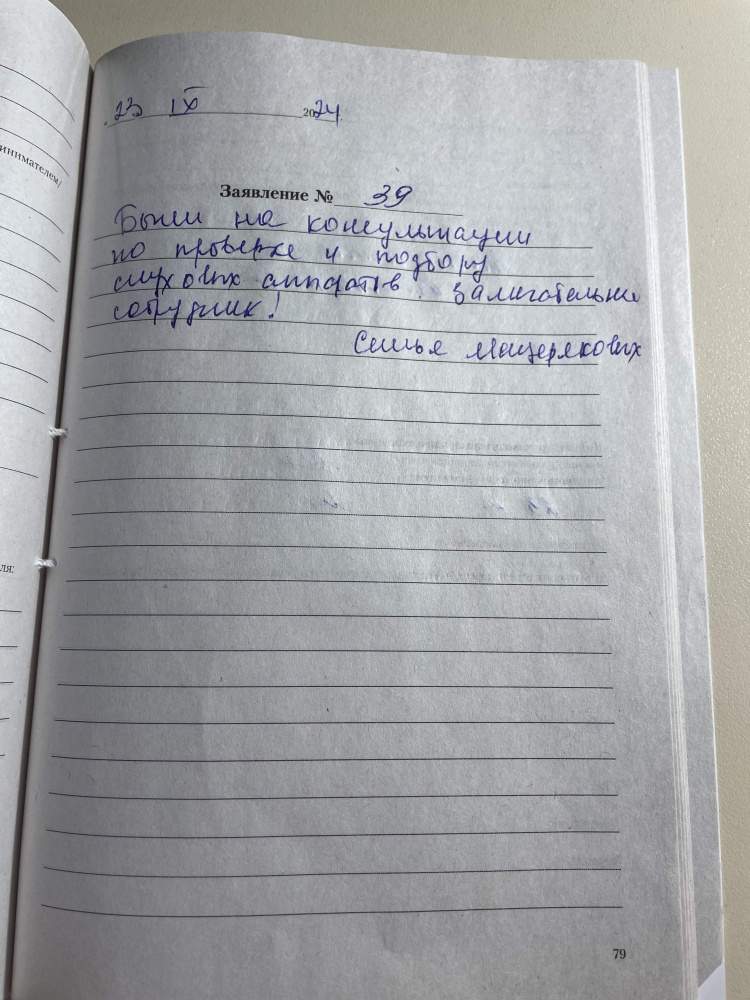 23 IX 2024
инимателем/
Заявление № 39
Были на консультации
по проверке и подбору
слуховых аппаратов. Замечательные
сотрудник!
Семья Мащеряковых
ля:
79